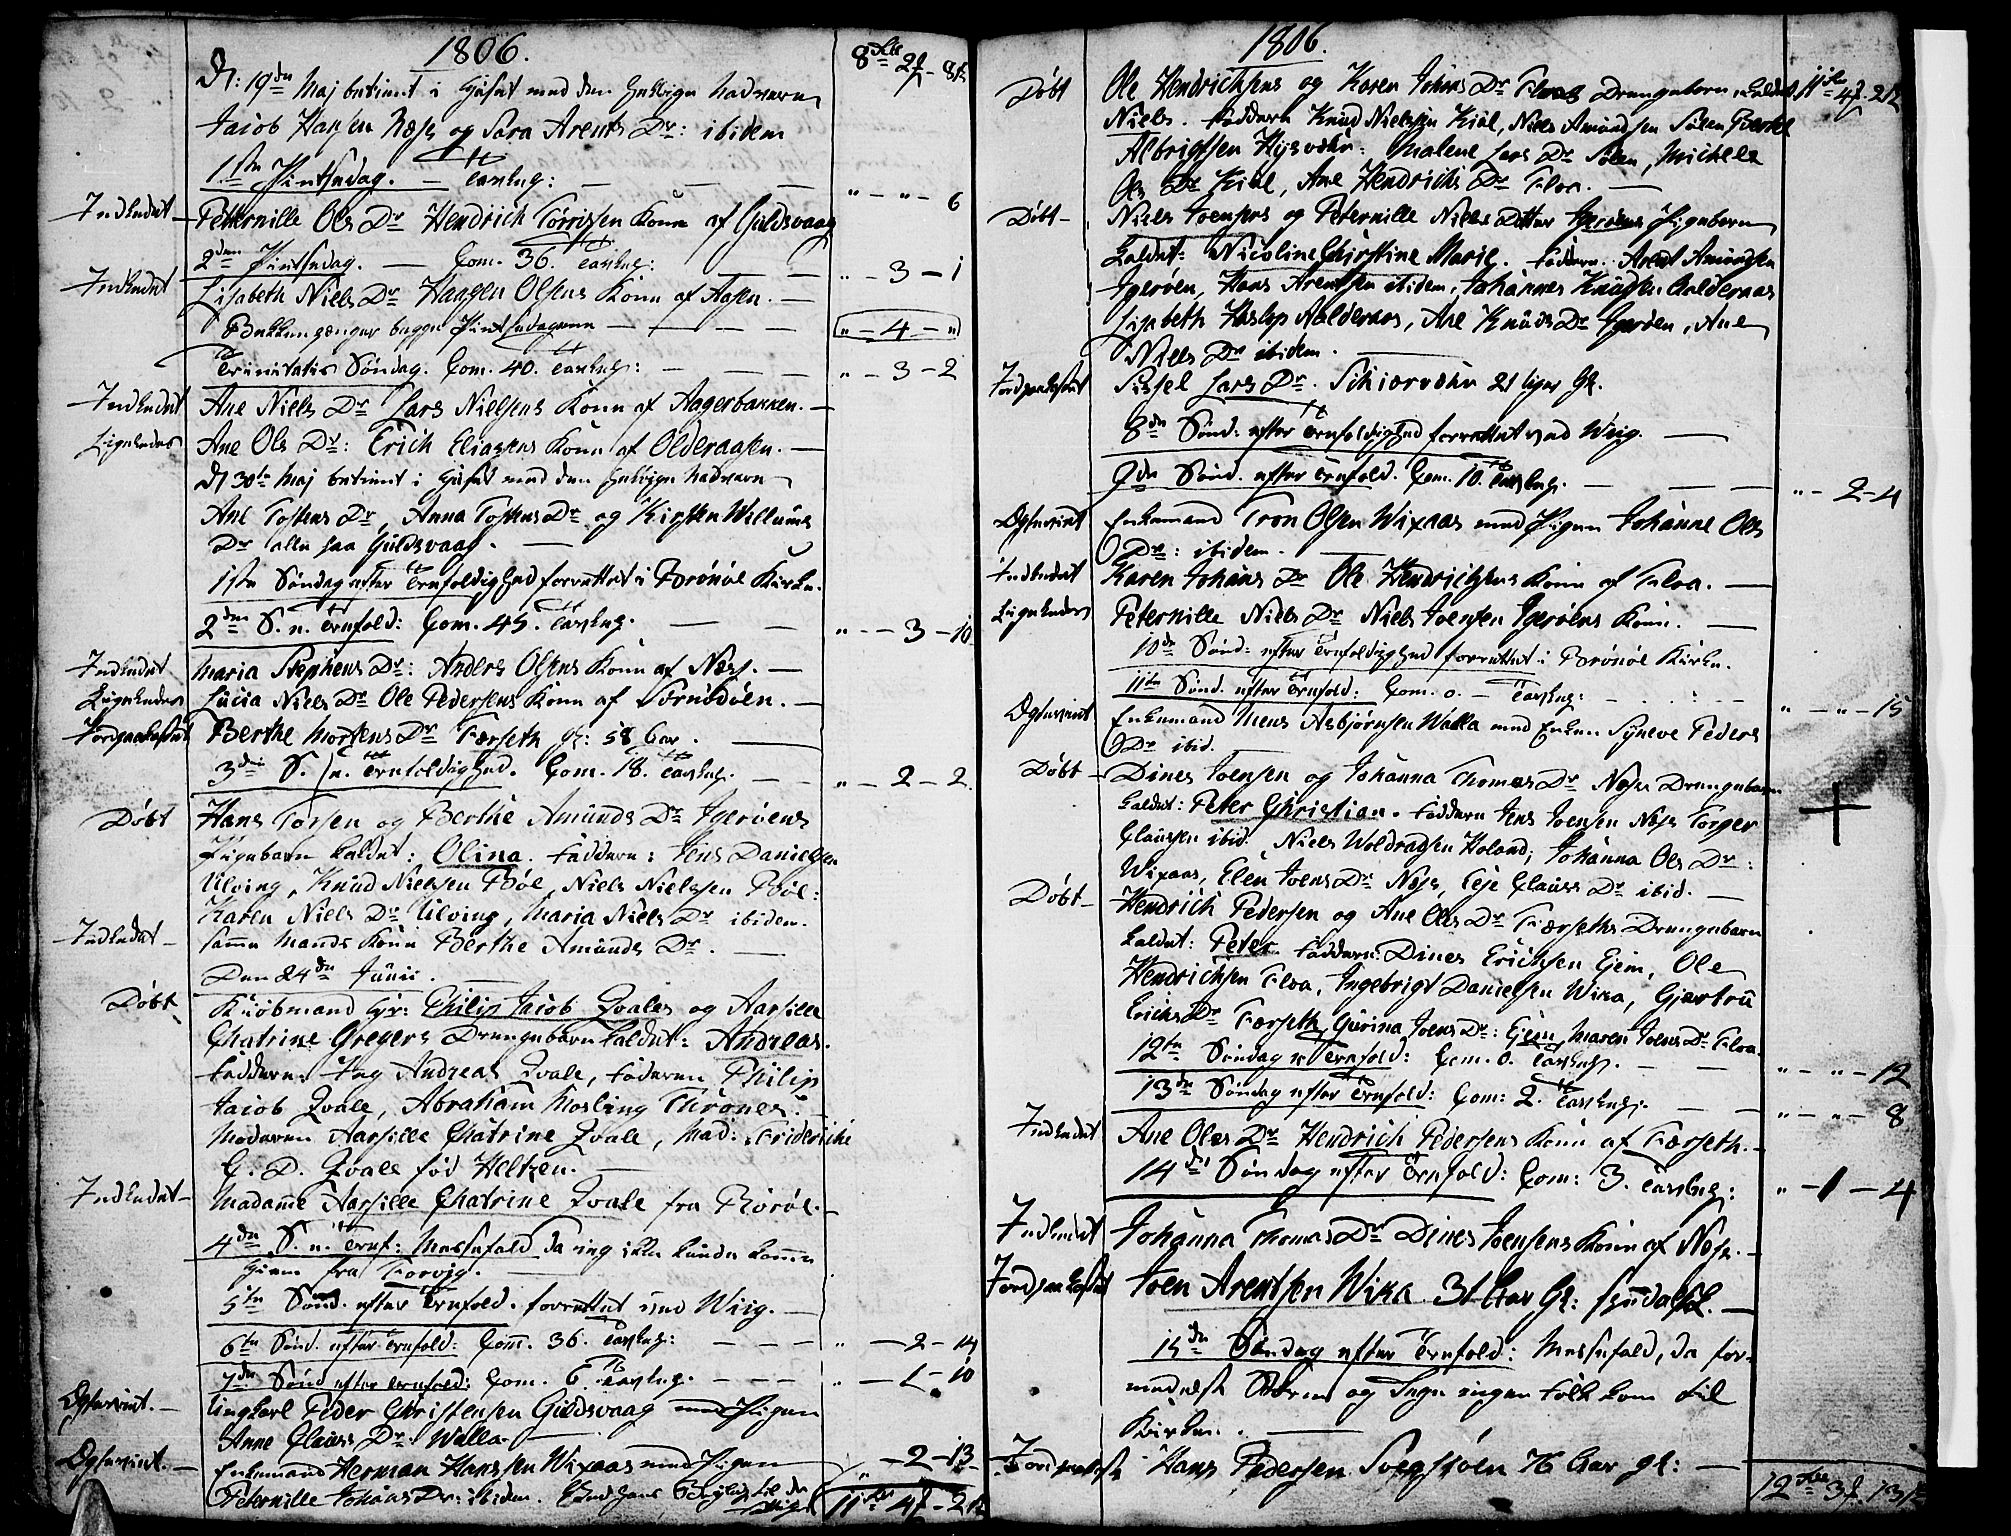 1806.
8 2 - 8
D: 19de Maj betient i Huset med den hellige Nadvere
Jacob Hansen Næss og Sara Arents Dr: ibidem
1ste Pintsedag. — Tavlep:
" - " - 6
Indledet — Petternille Ols Dr Hendrich Torrissen Kone af Guldsvaag
2den Pintsedag. — Com. 36. Tavlep:
" - 3 - 1
Indledet Lisabeth Niels Dr Hansen Olsens Kone af Aasen. —
Bekkenpenger begge Pintsedagene — " - 4 - "
Trinitatis Søndag. Com. 40. Tavlep: " - 3 - 2
Indledet Ane Niels Dr Lars Nielsens Kone af Aagerbakken. —
Ligeledes Ane Ols Dr: Erich Eliasens Kone af Olderaasen. —
D 30te Maj betient i Huset med den hellige Nadvere
Ane Tostens Dr, Anna Tostens Dr og Kirsten Willums
Dr alle paa Guldsvaag. —
1ste Søndag efter Trefoldighed forrettet i Brønøe Kirke.
2den S. e. Trefold: Com. 45. Tavlep. — " - 3 - 10
Indledet Maria Stephens Dr: Anders Olsens Kone af Næss. —
Ligeledes Lucia Niels Dr Ole Pedersens Kone af Tornødøen. —
Jordpaakastet Berthe Mortens Dr Færseth gl: 58 Aar.
3die S. e. Trefoldighed. Com. 18. Tavlep. — " - 2 - 2
Døbt Hans Torsen og Berthe Amunds Dr Igerøens
Pigebarn kaldet: Olina. Faddere: Jens Danielsen
Ulving, Knud Nielsen Bøe, Niels Nielssen Bøe:
Karen Niels Dr Ulving, Maria Niels Dr ibidem.
Indledet — samme Mands Kone Berthe Amunds Dr. —
Den 24de Junii.
Døbt Kiøbmand Hr: Philip Jacob Qvales og Aarsille
Chatrine Gregers Drengebarn kaldet: Andreas.
Faddere: Jeg Andreas Qvale, Faderen Philip
Jacob Qvale, Abraham Mosling Thrones:
Moderen Aarsille Chatrine Qvale, Mad: Frideriche
C. D. Qvale fød Heltzen. —
Indledet — Madame Aarsille Chatrine Qvale fra Rørøe. —
4de S. e. Tref: Messefald da jeg ikke kunde komme
hiem fra Forvig. —
5te Sønd. efter Trefold. forrettet ved Wiig. —
6te Sønd. efter Trefold: Com. 36. Tavlep: — " - 2 - 14
7de Sønd efter Trefold: Com. 6. Tavlep. — " - 1 - 10
Ogteviet. — Ungkarl Peder Christensen Guldsvaag med Pigen
Anne Claus Dr Walla —
Ogteviet. — Enkemand Herman Hanssen Wixaas med Pigen " - 2 - 13
Peternille Johans Dr: ibidem.
11 4 - 2
1806.
Døbt Ole Hendrichsens og Karen Johans Dr Floas Drengebarn kaldet 11 4 - 2
Niels. Faddere Knud Nielssen Kiel, Niels Amundsen Solen Peerkel
Albrigtsen Hysvær: Malene Lars Dr Solen, Michele
Ols Dr Kiel, Ane Hendrichs Dr Floa. —
Døbt — Niels Joensens og Peternille Niels Datter Igerøens Pigebarn
kaldet: Nicoline Christine Marie. Faddere. Arent Amundsen
Igerøen, Hans Arentsen ibidem, Johannes Knudsen Aalderaas
Lisabeth Haslop Aalderaas, Ane Knuds Dr Igerøen, Ane
Niels Dr ibidem. —
Jordpaakastet Sissel Lars Dr. Schiærvær 21 Uger gl.
8de Sønd: efter Trefoldighed forrettet ved Wiig. —
9de Sønd. efter Trefold. Com. 10. Tavlep. — " - 2 - 4
Ogteviet Enkemand Tron Olsen Wixaas med Pigen Johanne Ols
Dr: ibidem. —
Indledet Karen Johans Dr Ole Hendrichsens Kone af Floa. —
Ligeledes Peternille Niels Dr Niels Joensen Igerøens Kone. —
10de Sønd: efter Trefoldighed forrettet i Brønøe Kirke.
11te Sønd. efter Trefold: Com. 0. — Tavlep: " - " - 15
Ogteviet Enkemand Mons Asbjørnsen Walla med Enken Syneve Peders
Dr ibid.
Døbt — Dines Joensen og Johanna Thomas Dr Næss Drengebarn
kaldet: Peter Christian. Faddere Jens Joensen Næss Torger
Claussen ibid. Niels Woldradsen Holand; Johanna Ols Dr:
Wixaas, Elen Joens Dr Næss, Eeje Clauss Dr ibid. —
Døbt — Hendrich Pedersen og Ane Ols Dr Færseths Drengebarn
kaldet: Peter. Faddere: Dines Erichsen Ejem, Ole
Hendrichsen Floa, Ingebrigt Danielsen Wika, Gjærtru
Erichs Dr Færseth, Gurina Joens Dr: Ejem, Maren Joens Dr Floa.
12te Søndag e Trefold: Com. 0. Tavlep. — " - " - 12
13de Søndag efter Trefold: Com: 2. Tavlep. — " - " - 8
Indledet Ane Oles Dr Hendrich Pedersens Kone af Færseth. —
14de Søndag efter Trefold: Com: 3. Tavlep: " - 1 - 4
Indledet Johanna Thomas Dr Dines Joensens Kone af Næss. —
Jordpaakastet Joen Arentsen Wika 31 Aar gl: —
15de Søndag efter Trefold: Messefald, da for-
medelst Storm og Regn ingen Folk kom til
Kirken. —
Jordpaakastet Hans Pedersen 76 Aar gl: —
12 3 13